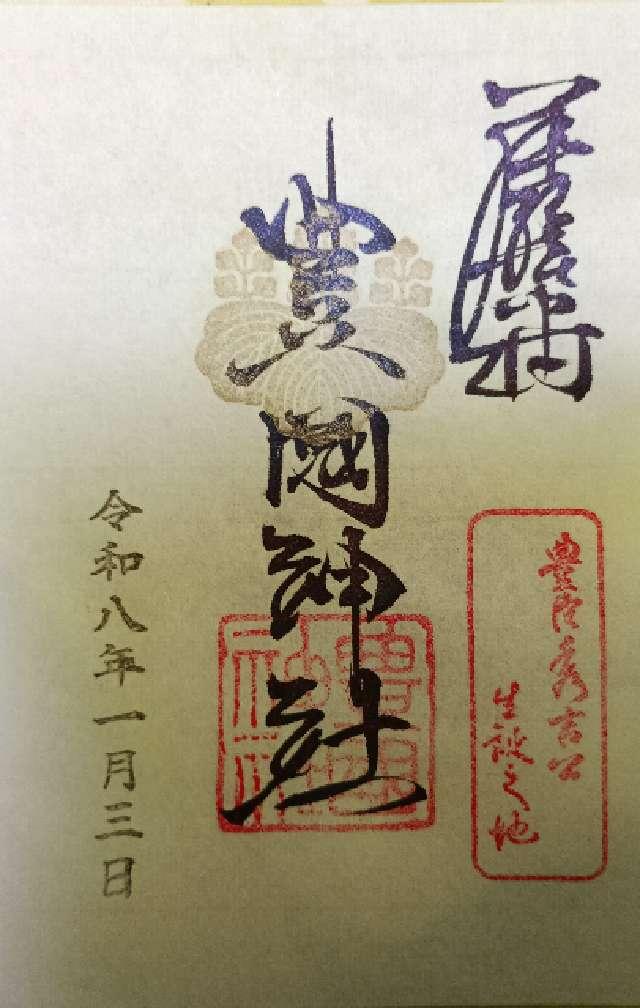 豊國神社
豊臣秀吉公
生誕之地
令和八年一月三日